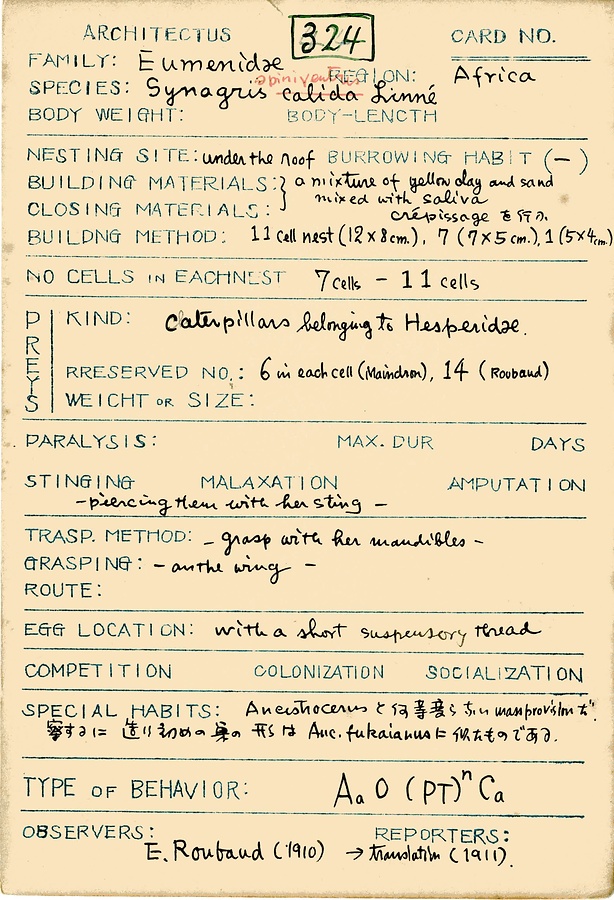 ARCHITECTUS 324 CARD NO.
FAMILY: Eumenidae REGION: Africa
spiniventris
SPECIES: Synagris calida Linné
BODY WEIGHT: BODY-LENGTH
NESTING SITE: under the roof BURROWING HABIT (-)
BUILDING MATERIALS: } a mixture of yellow clay and sand
mixed with saliva
CLOSING MATERIALS: crépissage を行う
BUILDNG METHOD: 11 cell nest (12×8cm.), 7 (7×5cm.), 1 (5×4cm.)
NO CELLS IN EACHNEST 7 cells - 11 cells
PREYS
KIND: Caterpillars belonging to Hesperidae.
RRESERVED NO.: 6 in each cell (Maindron), 14 (Roubaud)
WEIGHT OR SIZE:
PARALYSIS: MAX. DUR DAYS
STINGING MALAXATION AMPUTATION
- piercing them with her sting -
TRASP. METHOD: - grasp with her mandibles -
GRASPING: - on the wing -
ROUTE:
EGG LOCATION: with a short suspensory thread
COMPETITION COLONIZATION SOCIALIZATION
SPECIAL HABITS: Ancistrocerus と何等変らない mass provision だ.
察するに 造り初めの巣の形は Anc. fukaianus に似たものである.
TYPE OF BEHAVIOR: AaO(PT)ⁿCa
OBSERVERS: REPORTERS:
E. Roubaud (1910) → translation (1911).